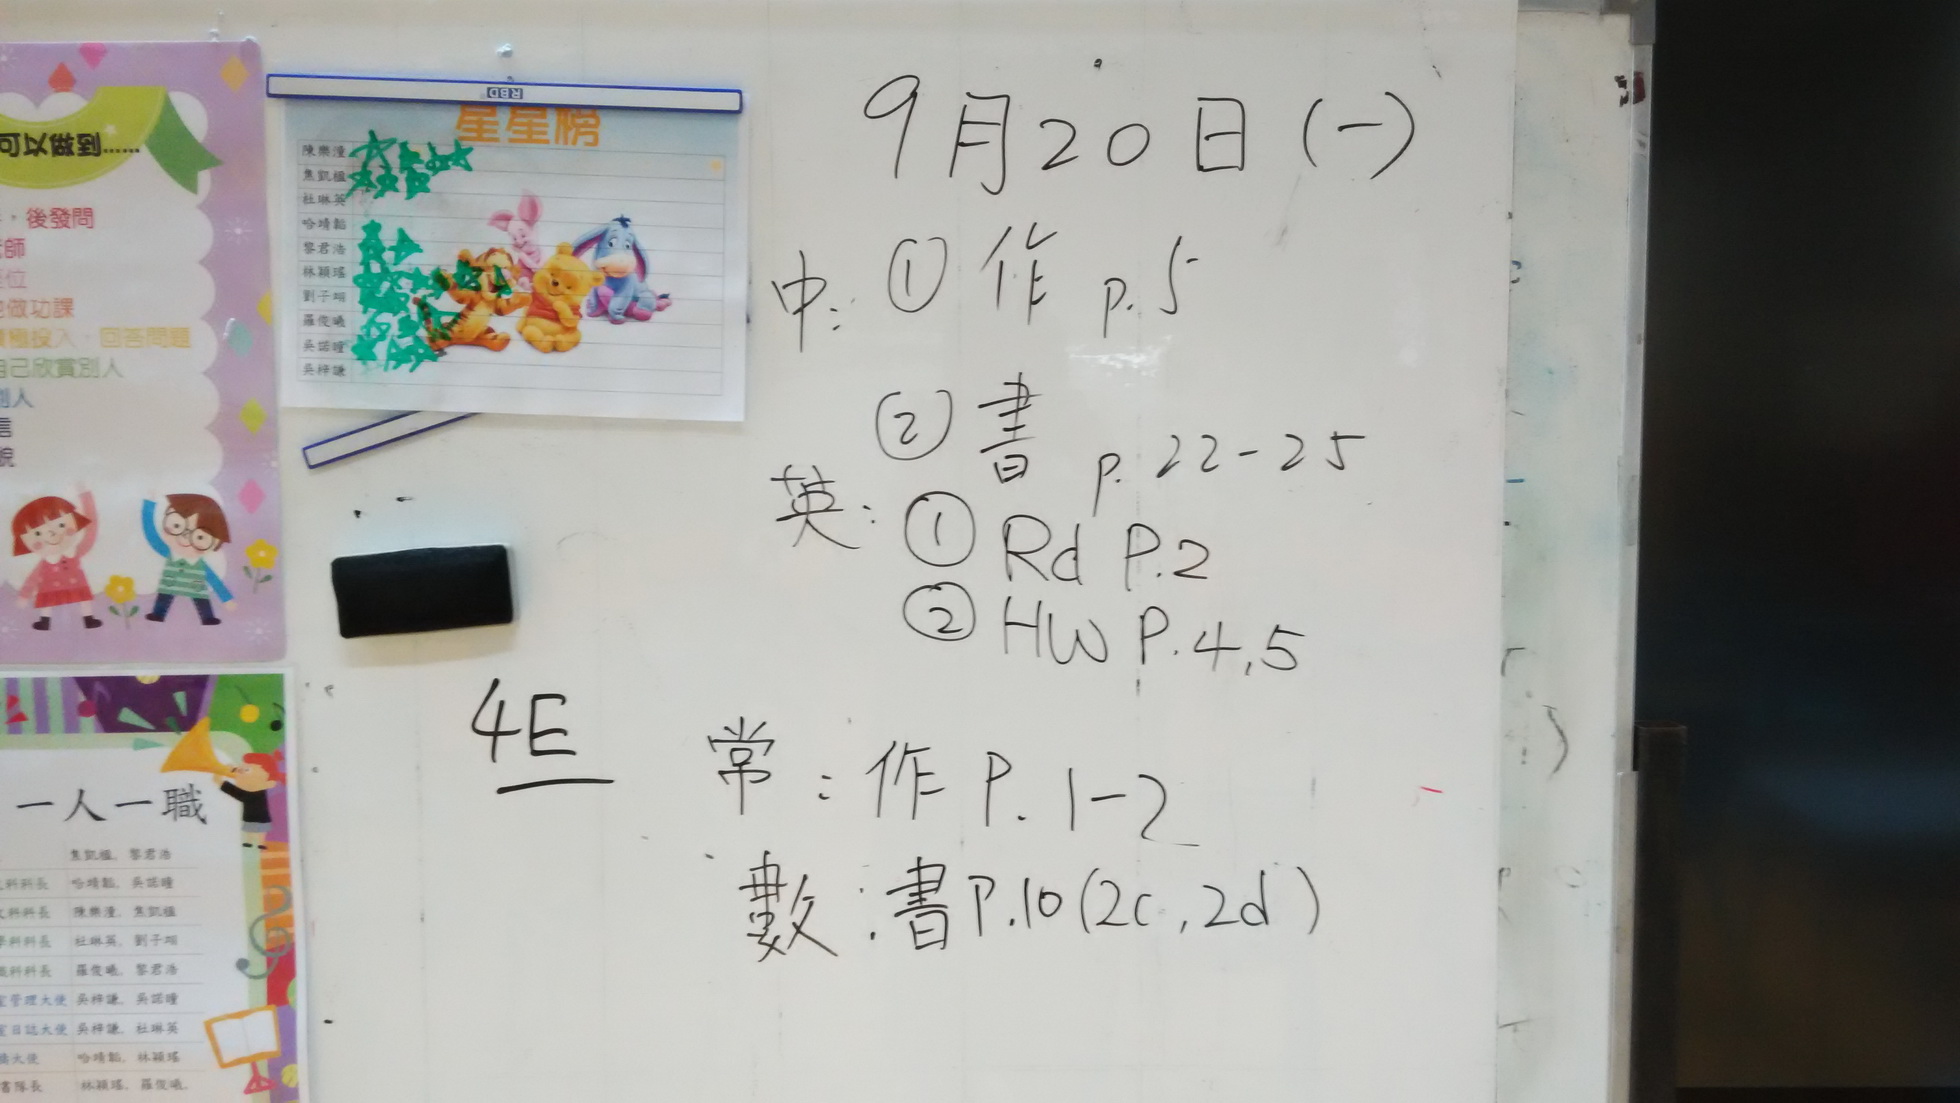 可以做到......
後發問
師
位
做功課
極投入、回答問題
自己欣賞別人
別人
信
貌
RBD
星星榜
陳樂潼
焦凱楹
杜琳英
哈靖韜
黎君浩
林穎瑤
劉子翊
羅俊曦
吳諾瞳
吳梓謙
9月20日(一)
中: ① 作 p.5
② 書 p.22-25
英: ① Rd P.2
② HW P.4,5
4E
常: 作 P.1-2
數: 書 P.10(2c,2d)
一人一職
焦凱楹, 黎君浩
科科長 哈靖韜, 吳諾瞳
科科長 陳樂潼, 焦凱楹
學科科長 杜琳英, 劉子翊
識科科長 羅俊曦, 黎君浩
室管理大使 吳梓謙, 吳諾瞳
室日誌大使 吳梓謙, 杜琳英
大使 哈靖韜, 林穎瑤
書隊長 林穎瑤, 羅俊曦,